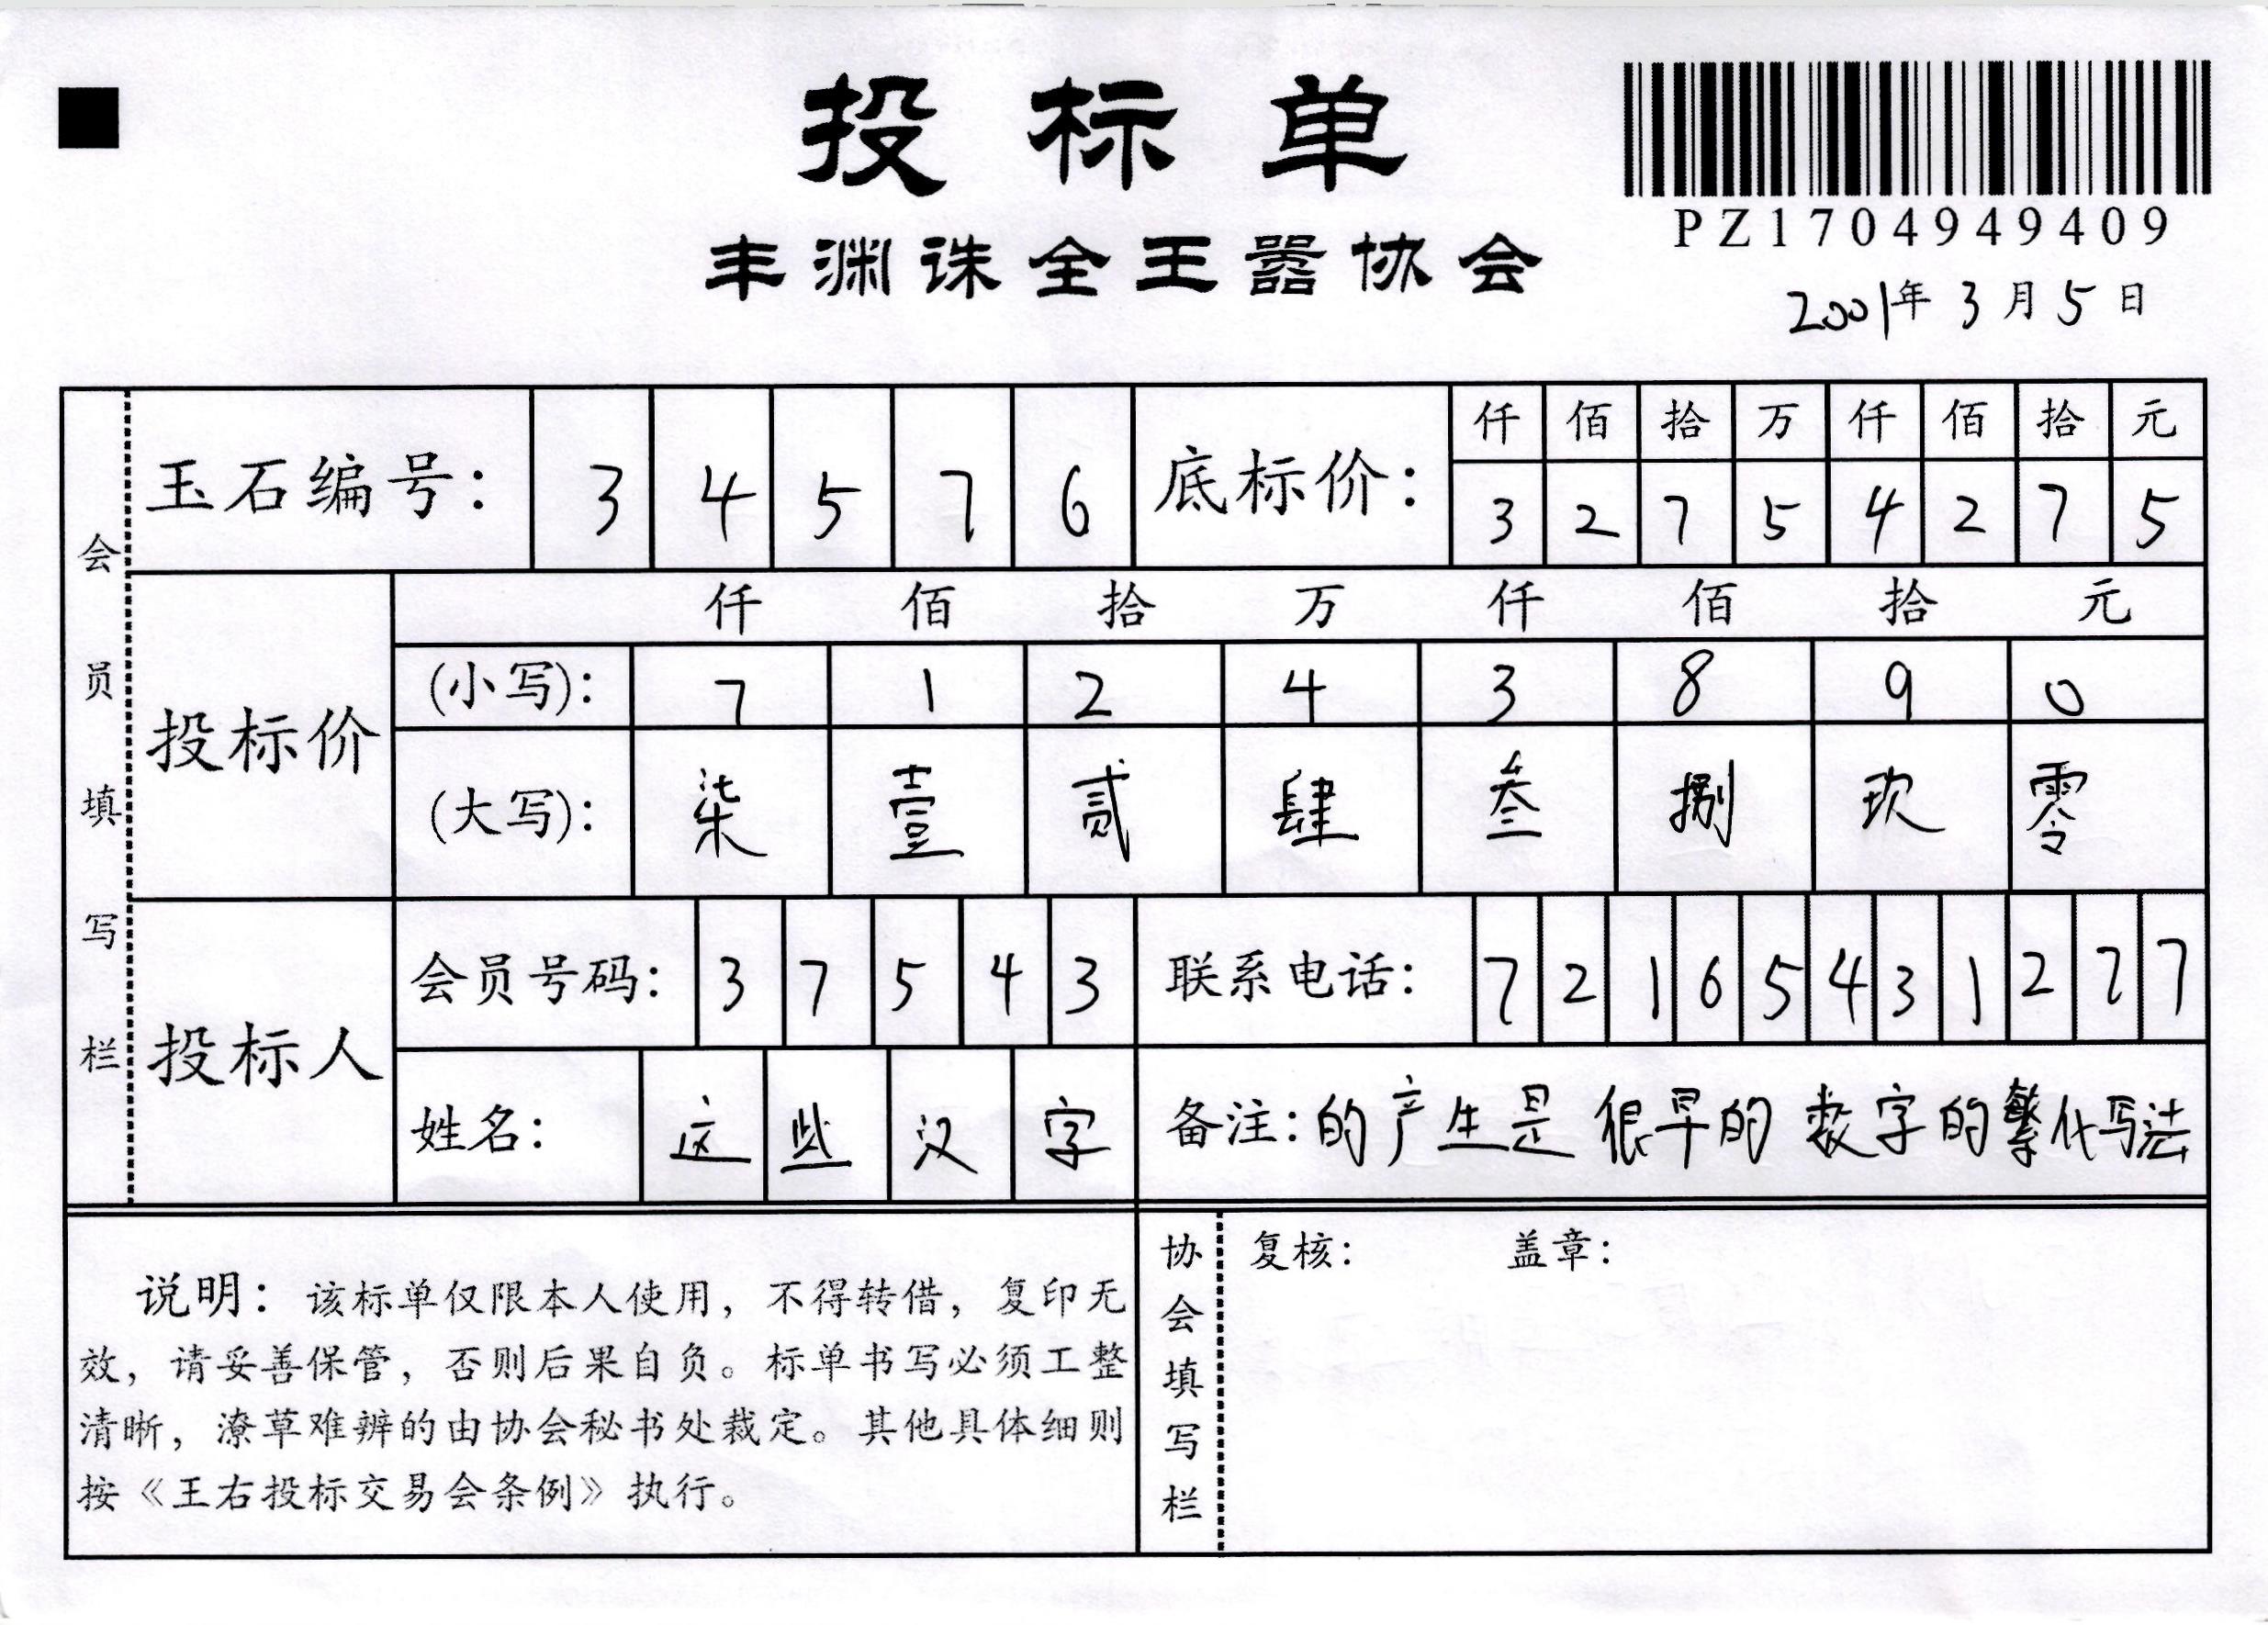 投标单
PZ1704949409
丰渊诛全王嚣协会
2001年3月5日
会员填写栏
玉石编号: 3 4 5 7 6
底标价: 仟 佰 拾 万 仟 佰 拾 元
3 2 7 5 4 2 7 5
投标价
仟 佰 拾 万 仟 佰 拾 元
(小写): 7 1 2 4 3 8 9 0
(大写): 柒 壹 贰 肆 叁 捌 玖 零
投标人
会员号码: 3 7 5 4 3
联系电话: 7 2 1 6 5 4 3 1 2 7 7
姓名: 这 些 汉 字
备注: 的产生是 很早的 数字的繁化写法
说明: 该标单仅限本人使用, 不得转借, 复印无
效, 请妥善保管, 否则后果自负。标单书写必须工整
清晰, 潦草难辨的由协会秘书处裁定。其他具体细则
按《王右投标交易会条例》执行。
协会填写栏
复核: 盖章: